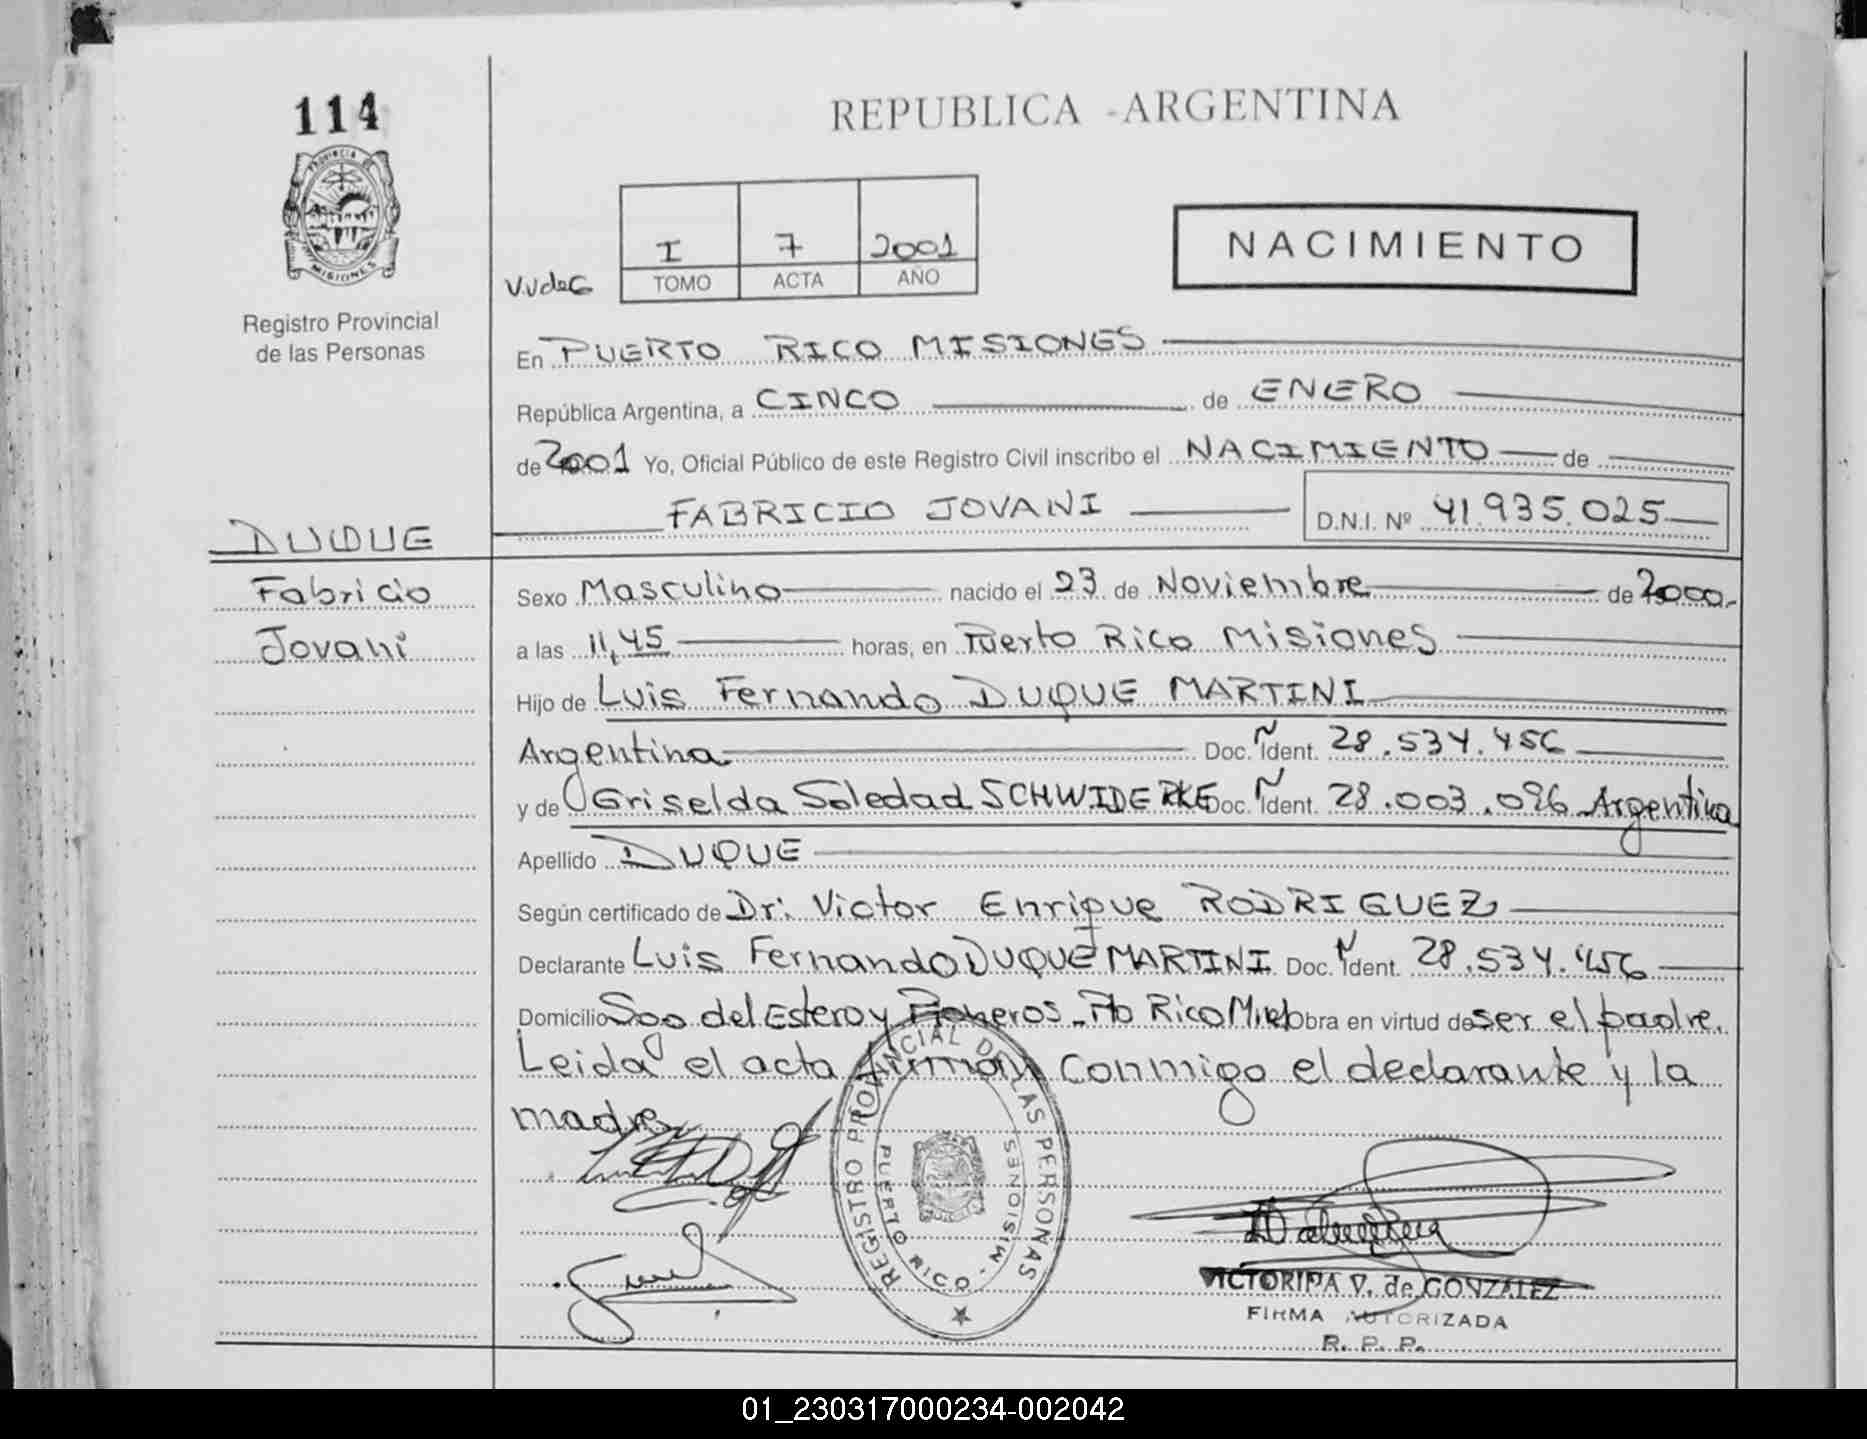 114
PROVINCIA DE
MISIONES
Registro Provincial
de las Personas
REPUBLICA - ARGENTINA
I 7 2001
VVdeG TOMO ACTA AÑO
NACIMIENTO
En PUERTO RICO MISIONES
República Argentina, a CINCO de ENERO
de 2001 Yo, Oficial Público de este Registro Civil inscribo el NACIMIENTO de
FABRICIO JOVANI D.N.I. Nº 41.935.025
DUQUE
Fabricio
Jovani
Sexo Masculino nacido el 23 de Noviembre de 2000.-
a las 11,45 horas, en Puerto Rico Misiones
Hijo de Luis Fernando DUQUE MARTINI
Argentina Doc. Ident. 28.534.456
y de Griselda Soledad SCHWIDERKE Doc. Ident. 28.003.096 Argentina
Apellido DUQUE
Según certificado de Dr: Victor Enrique RODRIGUEZ
Declarante Luis Fernando DUQUE MARTINI Doc. Ident. 28.534.456
Domicilio Sgo del Estero y Pioneros - Pto Rico Mnes Obra en virtud de ser el padre.
Leida el acta firman conmigo el declarante y la
madre
REGISTRO PROVINCIAL DE LAS PERSONAS
PUERTO RICO - MISIONES
VICTORINA V. de GONZALEZ
FIRMA AUTORIZADA
R. P. P.
01_230317000234-002042